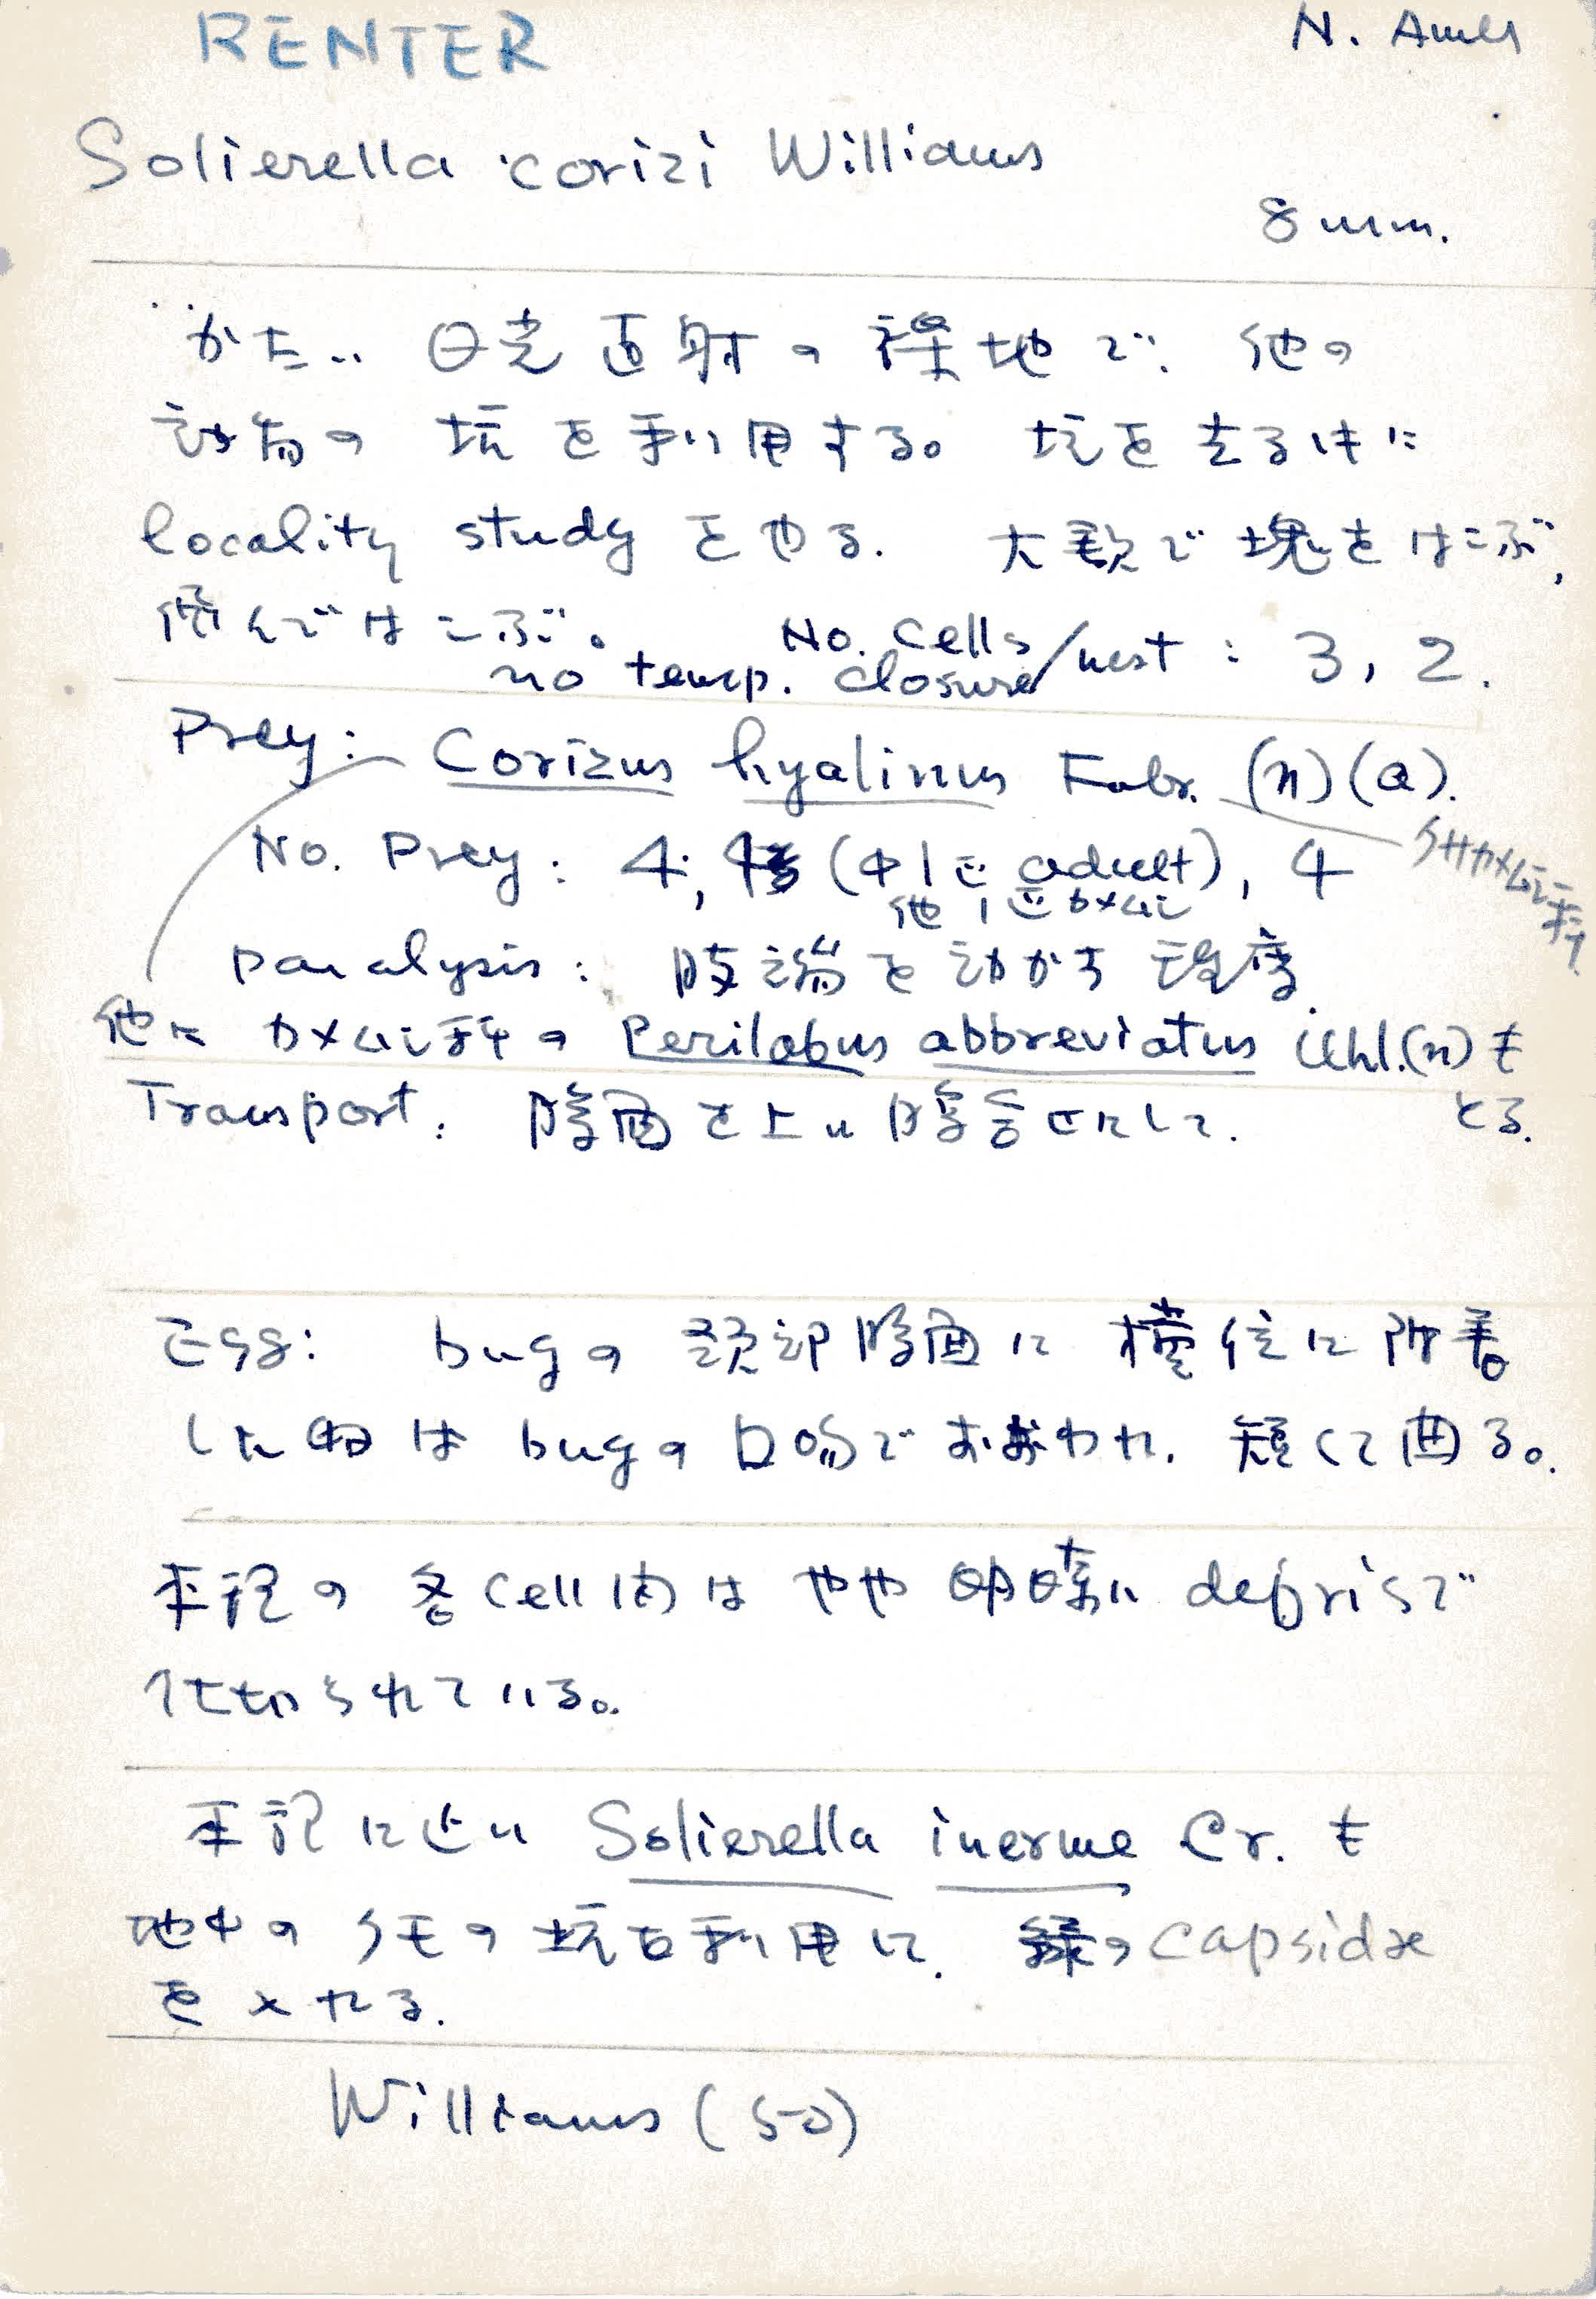 RENTER
N. Amer
Solierella corizi Williams
8 mm.
かたい 日光直射の裸地で. 他の
動物の坑を利用する。 坑を去る時に
locality study をやる. 大顎で塊をはこぶ,
啣んではこぶ。 No. Cells/nest : 3, 2.
no temp. closure
Prey: Corizus hyalinus Fabr. (n)(a).
ヘリカメムシ科
No. Prey : 4, (中1は adult), 4
他 1は カメムシ
Paralysis : 肢端を動かす程度.
他に カメムシ科の Perilobus abbreviatus Uhl.(n) も
とる.
Transport : 腹面を上に 腹合せにして.
Egg : bugの 頸部腹面に 横位に附着
した卵は bugの口吻でおおわれ. 短くて曲る。
本記の 各cell 内は やや 明瞭に debrisで
仕切られている。
本記に近い Solierella inerme Cr. も
地中の 他の坑を利用して. 緑の capsidae
を入れる.
Williams (50)